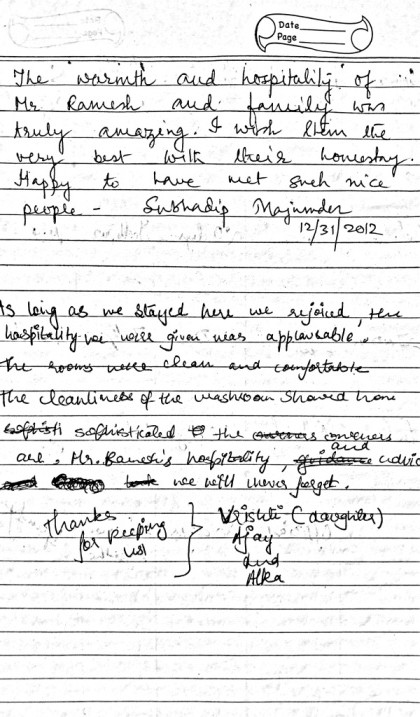 Date
Page
The warmth and hospitality of
Mr. Ramesh and family was
truly amazing. I wish them the
very best with their homestay.
Happy to have met such nice
people - Subhadip Majumder
12/31/2012
As long as we stayed here we rejoiced, the
hospitality we were given was applausable.
The rooms were clean and comfortable
The cleanliness of the washroom showed how
sophisticated the owners
are. Mr. Ramesh's hospitality, and
we will never forget.
Thanks
for keeping
us!
Vrishti (daughter)
Ajay
and
Alka